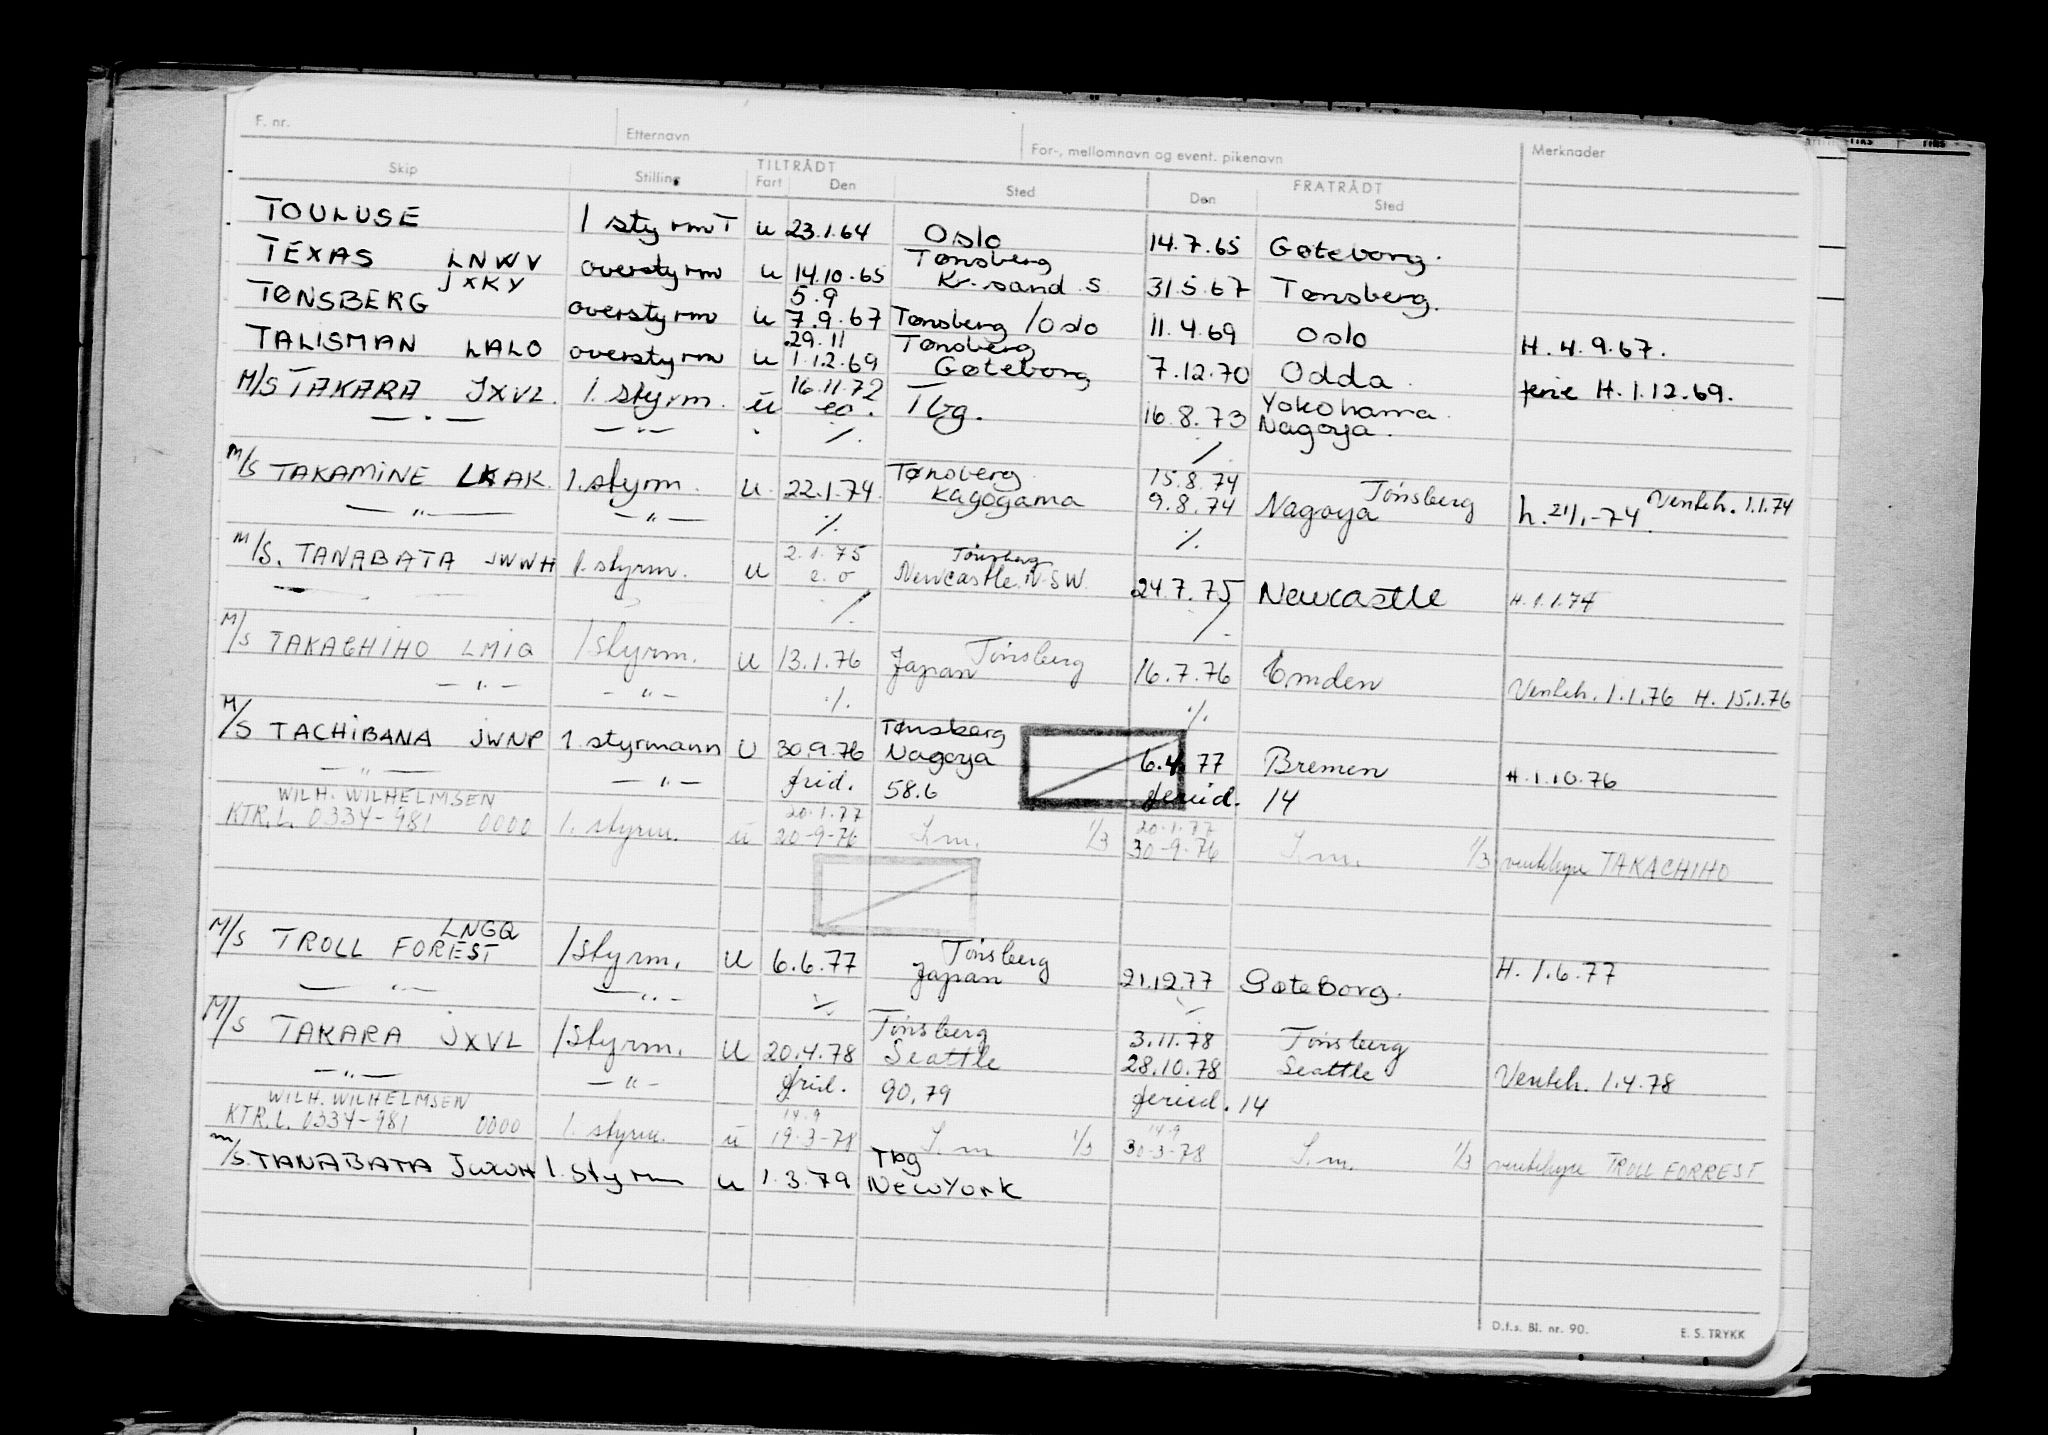 F. nr. Etternavn For-, mellomnavn og event. pikenavn Merknader
Skip Stilling TILTRÅDT Fart Den Sted FRATRÅDT Den Sted
TOULUSE 1 styrmT u 23.1.64 Oslo 14.7.65 Gøteborg.
TEXAS LNWV overstyrm u 14.10.65 Tønsberg Kr.sand S. 31.5.67 Tønsberg.
JXKY 5.9
TØNSBERG overstyrm u 7.9.67 Tønsberg/Oslo 11.4.69 Oslo H. 4.9.67.
29.11 Tønsberg
TALISMAN LALO overstyrm u 1.12.69 Gøteborg 7.12.70 Odda ferie H. 1.12.69.
16.11.72 Yokohama.
M/S TAKARA JXVL. 1. styrm. ü eo. Tbg. 16.8.73 Nagoya.
— " — — " — " ./. ./.
Tønsberg 15.8.74 Tönsberg
M/S TAKAMINE LKAK. 1. styrm. u. 22.1.74. Kagogama 9.8.74 Nagoya h. 21/1-74 Venteh. 1.1.74
— " — — " — ./. ./.
2.1.75 Tönsberg
M/S. TANABATA JWWH 1. styrm. u e.o Newcastle N.S.W. 24.7.75 Newcastle H. 1.1.74
./. ./.
M/S TAKACHIHO LMIQ 1 Styrm. u 13.1.76 Japan Tönsberg 16.7.76 Emden Venteh. 1.1.76 H. 15.1.76
— " — — " — ./. ./.
Tønsberg
M/S TACHIBANA JWNP 1. styrmann U 30.9.76 Nagoya 6.4.77 Bremen H. 1.10.76
— " — — " — frid. 58.6 feried. 14
WILH. WILHELMSEN 20.1.77 20.1.77
KTR.L. 0334-981 0000 1. styrm. ü 20-9-76 S.m. 1/3 30-9-76 S.m. 1/3 ventehyre TAKACHIHO
LNGQ Tönsberg
M/S TROLL FOREST 1 styrm. U 6.6.77 Japan 21.12.77 Gøteborg. H. 1.6.77
— " — — " — ./. ./.
Tönsberg 3.11.78 Tönsberg
M/S TAKARA JXVL 1 Styrm. U 20.4.78 Seattle 28.10.78 Seattle Venteh. 1.4.78
— " — — " — frid. 90,79 feried. 14
WILH. WILHELMSEN 14.9 14.9
KTR.L. 0334-981 0000 1. styrm. ü 19.3-78 S.m 1/3 30-3-78 S.m. 1/3 ventehyre TROLL FORREST
Tbg
m/s. TANABATA JWWH 1. styrm u 1.3.79 New York
D.f.s. Bl. nr. 90. E. S. TRYKK